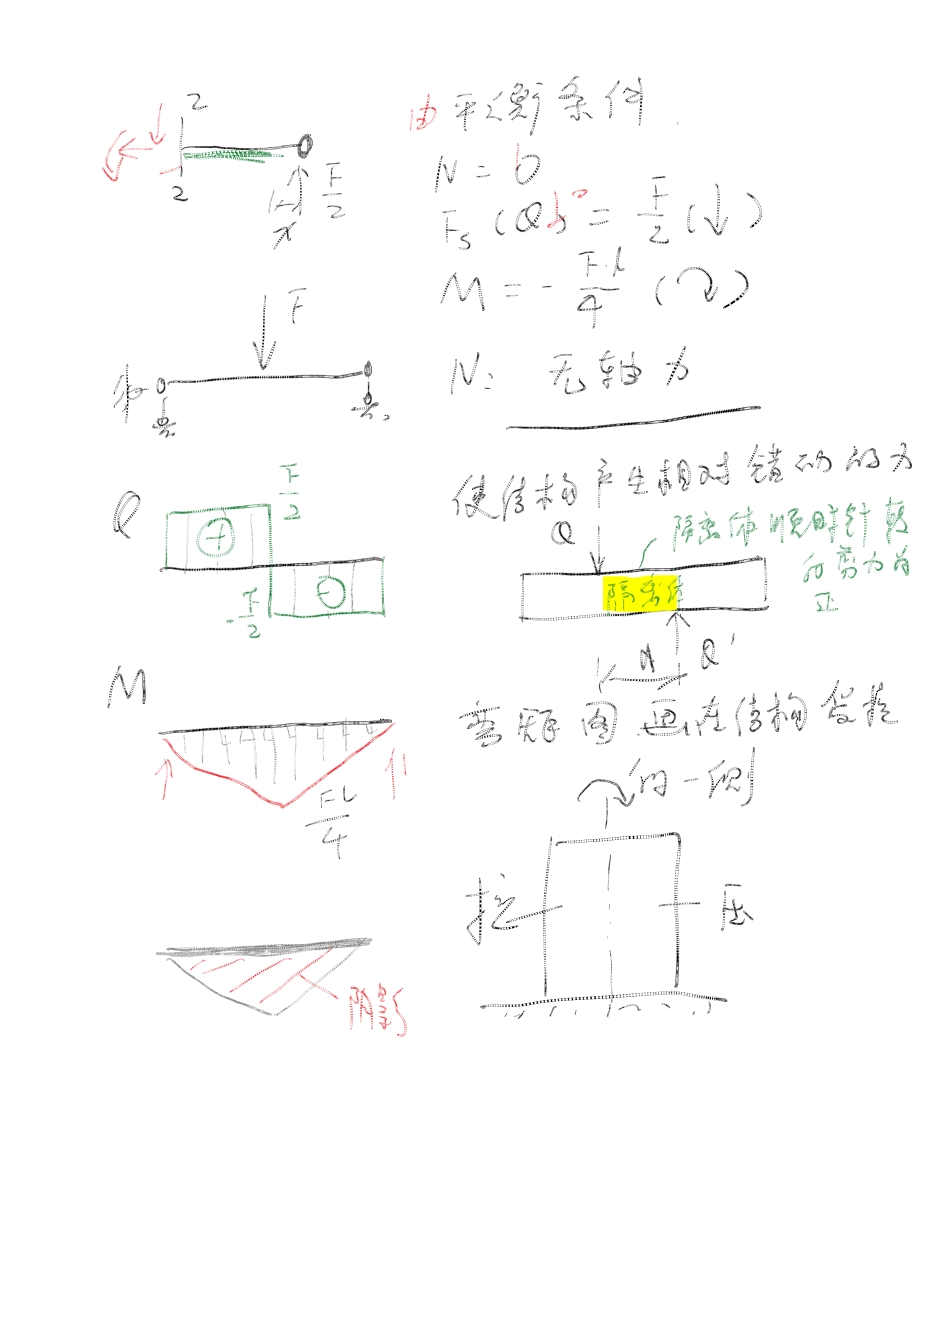 2
由平衡条件.
N = 0
2
F/2
x
Fs (Q) = F/2 (↓)
M = - F·l/4 (↷)
F
N: 无轴力
使结构产生相对错动的力
F/2
Q
Q
隔离体顺时针转
的剪力为
正
⊕
⊖
隔离体
-F/2
Q'
M
弯矩图画在结构受拉
的一侧
Fl/4
拉
压
阴影